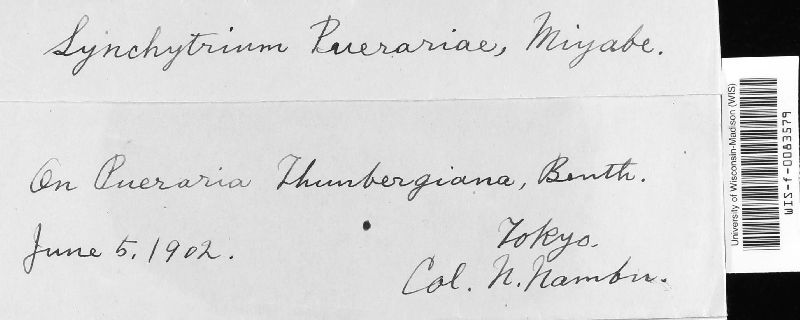 Synchytrium Puerariae, Miyabe.
On Pueraria Thunbergiana, Benth.
June 5. 1902.
Tokyo.
Col. N. Nambu.
University of Wisconsin-Madison (WIS)
WIS-f-0083579